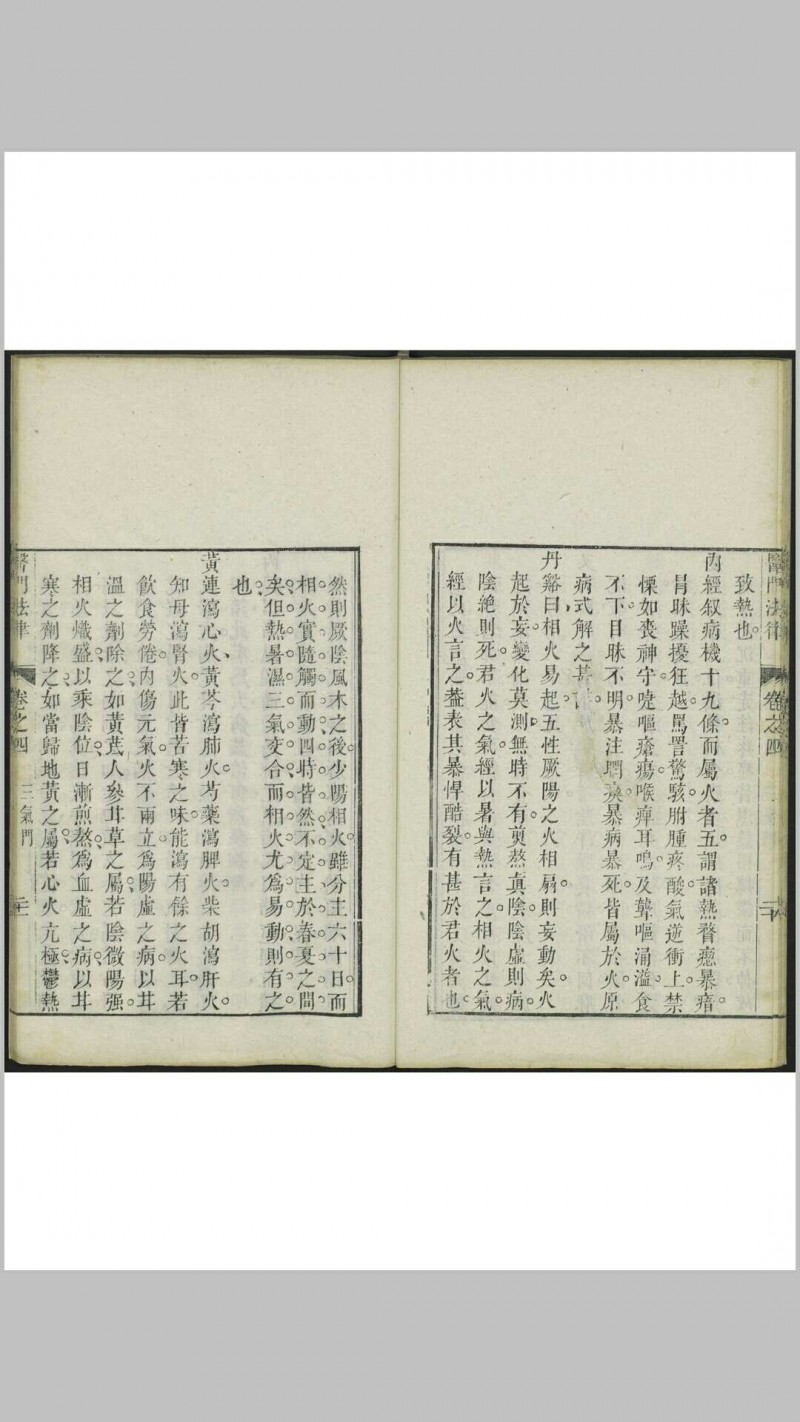 醫門法律 卷之四
致熱也
內經叙病機十九條而屬火者五謂諸熱瞀瘛暴瘖
冒昧躁擾狂越罵詈驚駭胕腫疼酸氣逆衝上禁
慄如喪神守嚏嘔瘡瘍喉痺耳鳴及聾嘔涌溢食
不下目昧不明暴注瞤瘛暴病暴死皆屬於火原
病式解之甚
丹谿曰相火易起五性厥陽之火相扇則妄動矣火
起於妄變化莫測無時不有煎熬真陰陰虛則病
陰絕則死君火之氣經以暑與熱言之相火之氣
經以火言之葢表其暴悍酷裂有甚於君火者也
然則厥陰風木之後少陽相火雖分主六十日而
相火實隨觸而動四時皆然不定主於春夏之間
矣但熱暑濕三氣交合而相火尤為易動則有之
也
黃連瀉心火黃芩瀉肺火芍藥瀉脾火柴胡瀉肝火
知母瀉腎火此皆苦寒之味能瀉有餘之火耳若
飲食勞倦內傷元氣火不兩立爲陽虛之病以甘
溫之劑除之如黃茋人參甘草之屬若陰微陽强
相火熾盛以乘陰位日漸煎熬爲血虛之病以甘
寒之劑降之如當歸地黃之屬若心火亢極鬱熱
醫門法律 卷之四 三氣門